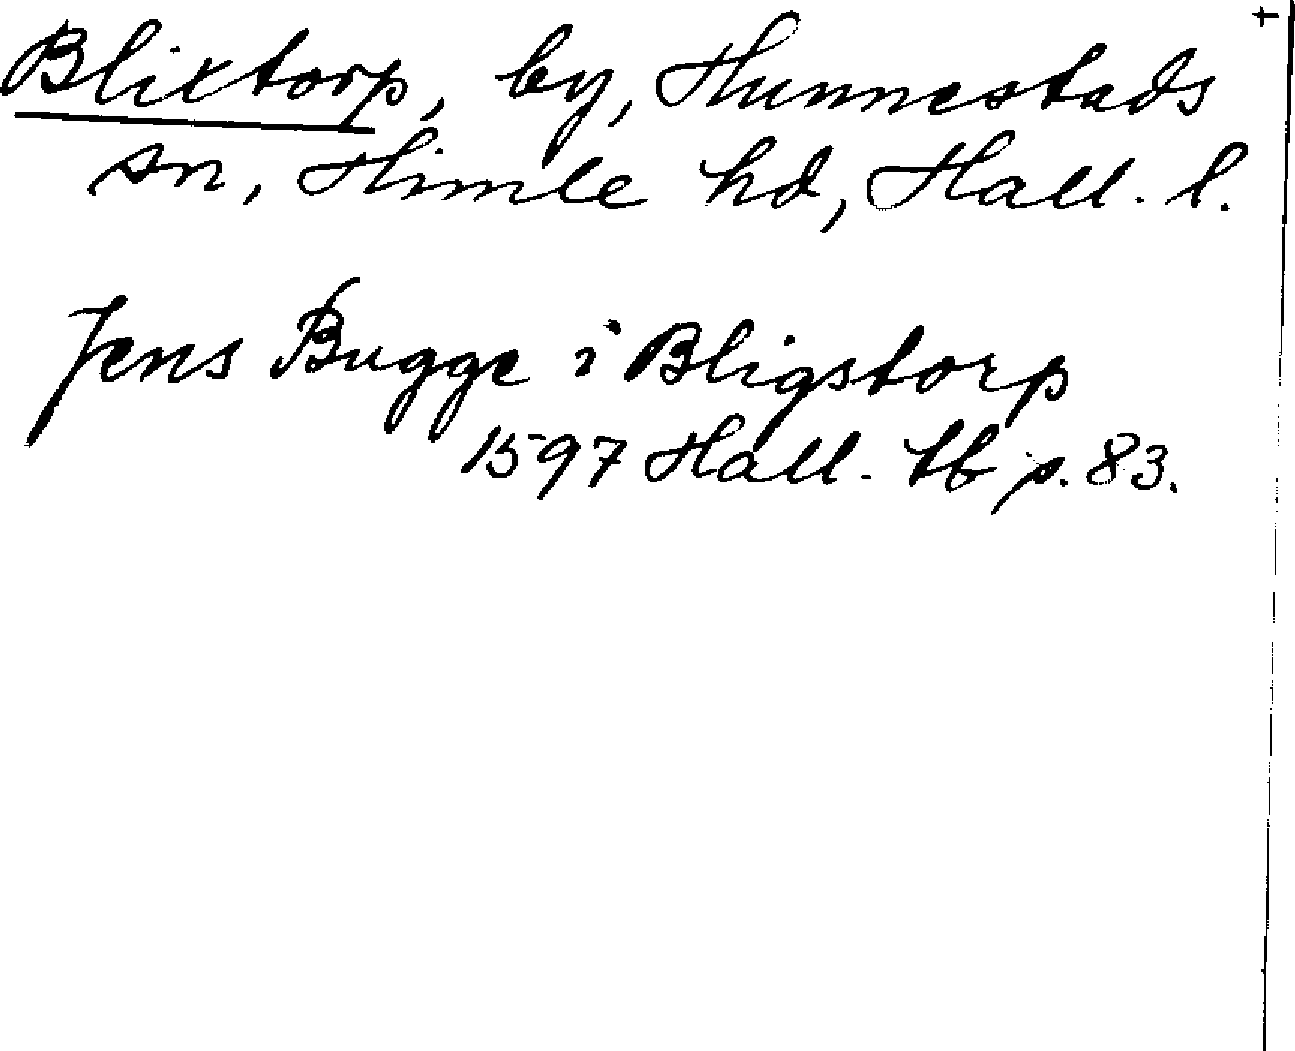 +
Blixtorp, by, Hunnestads
sn, Himle hd, Hall. l.
Jens Bugge i Bligstorp
1597 Hall. lb s. 83.